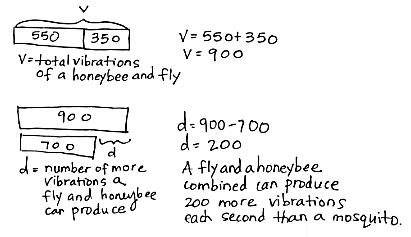 V
550 350
V = 550 + 350
V = 900
V = total vibrations
of a honeybee and fly
900
700
d
d = 900 - 700
d = 200
d = number of more
vibrations a
fly and honeybee
can produce
A fly and a honeybee
combined can produce
200 more vibrations
each second than a mosquito.